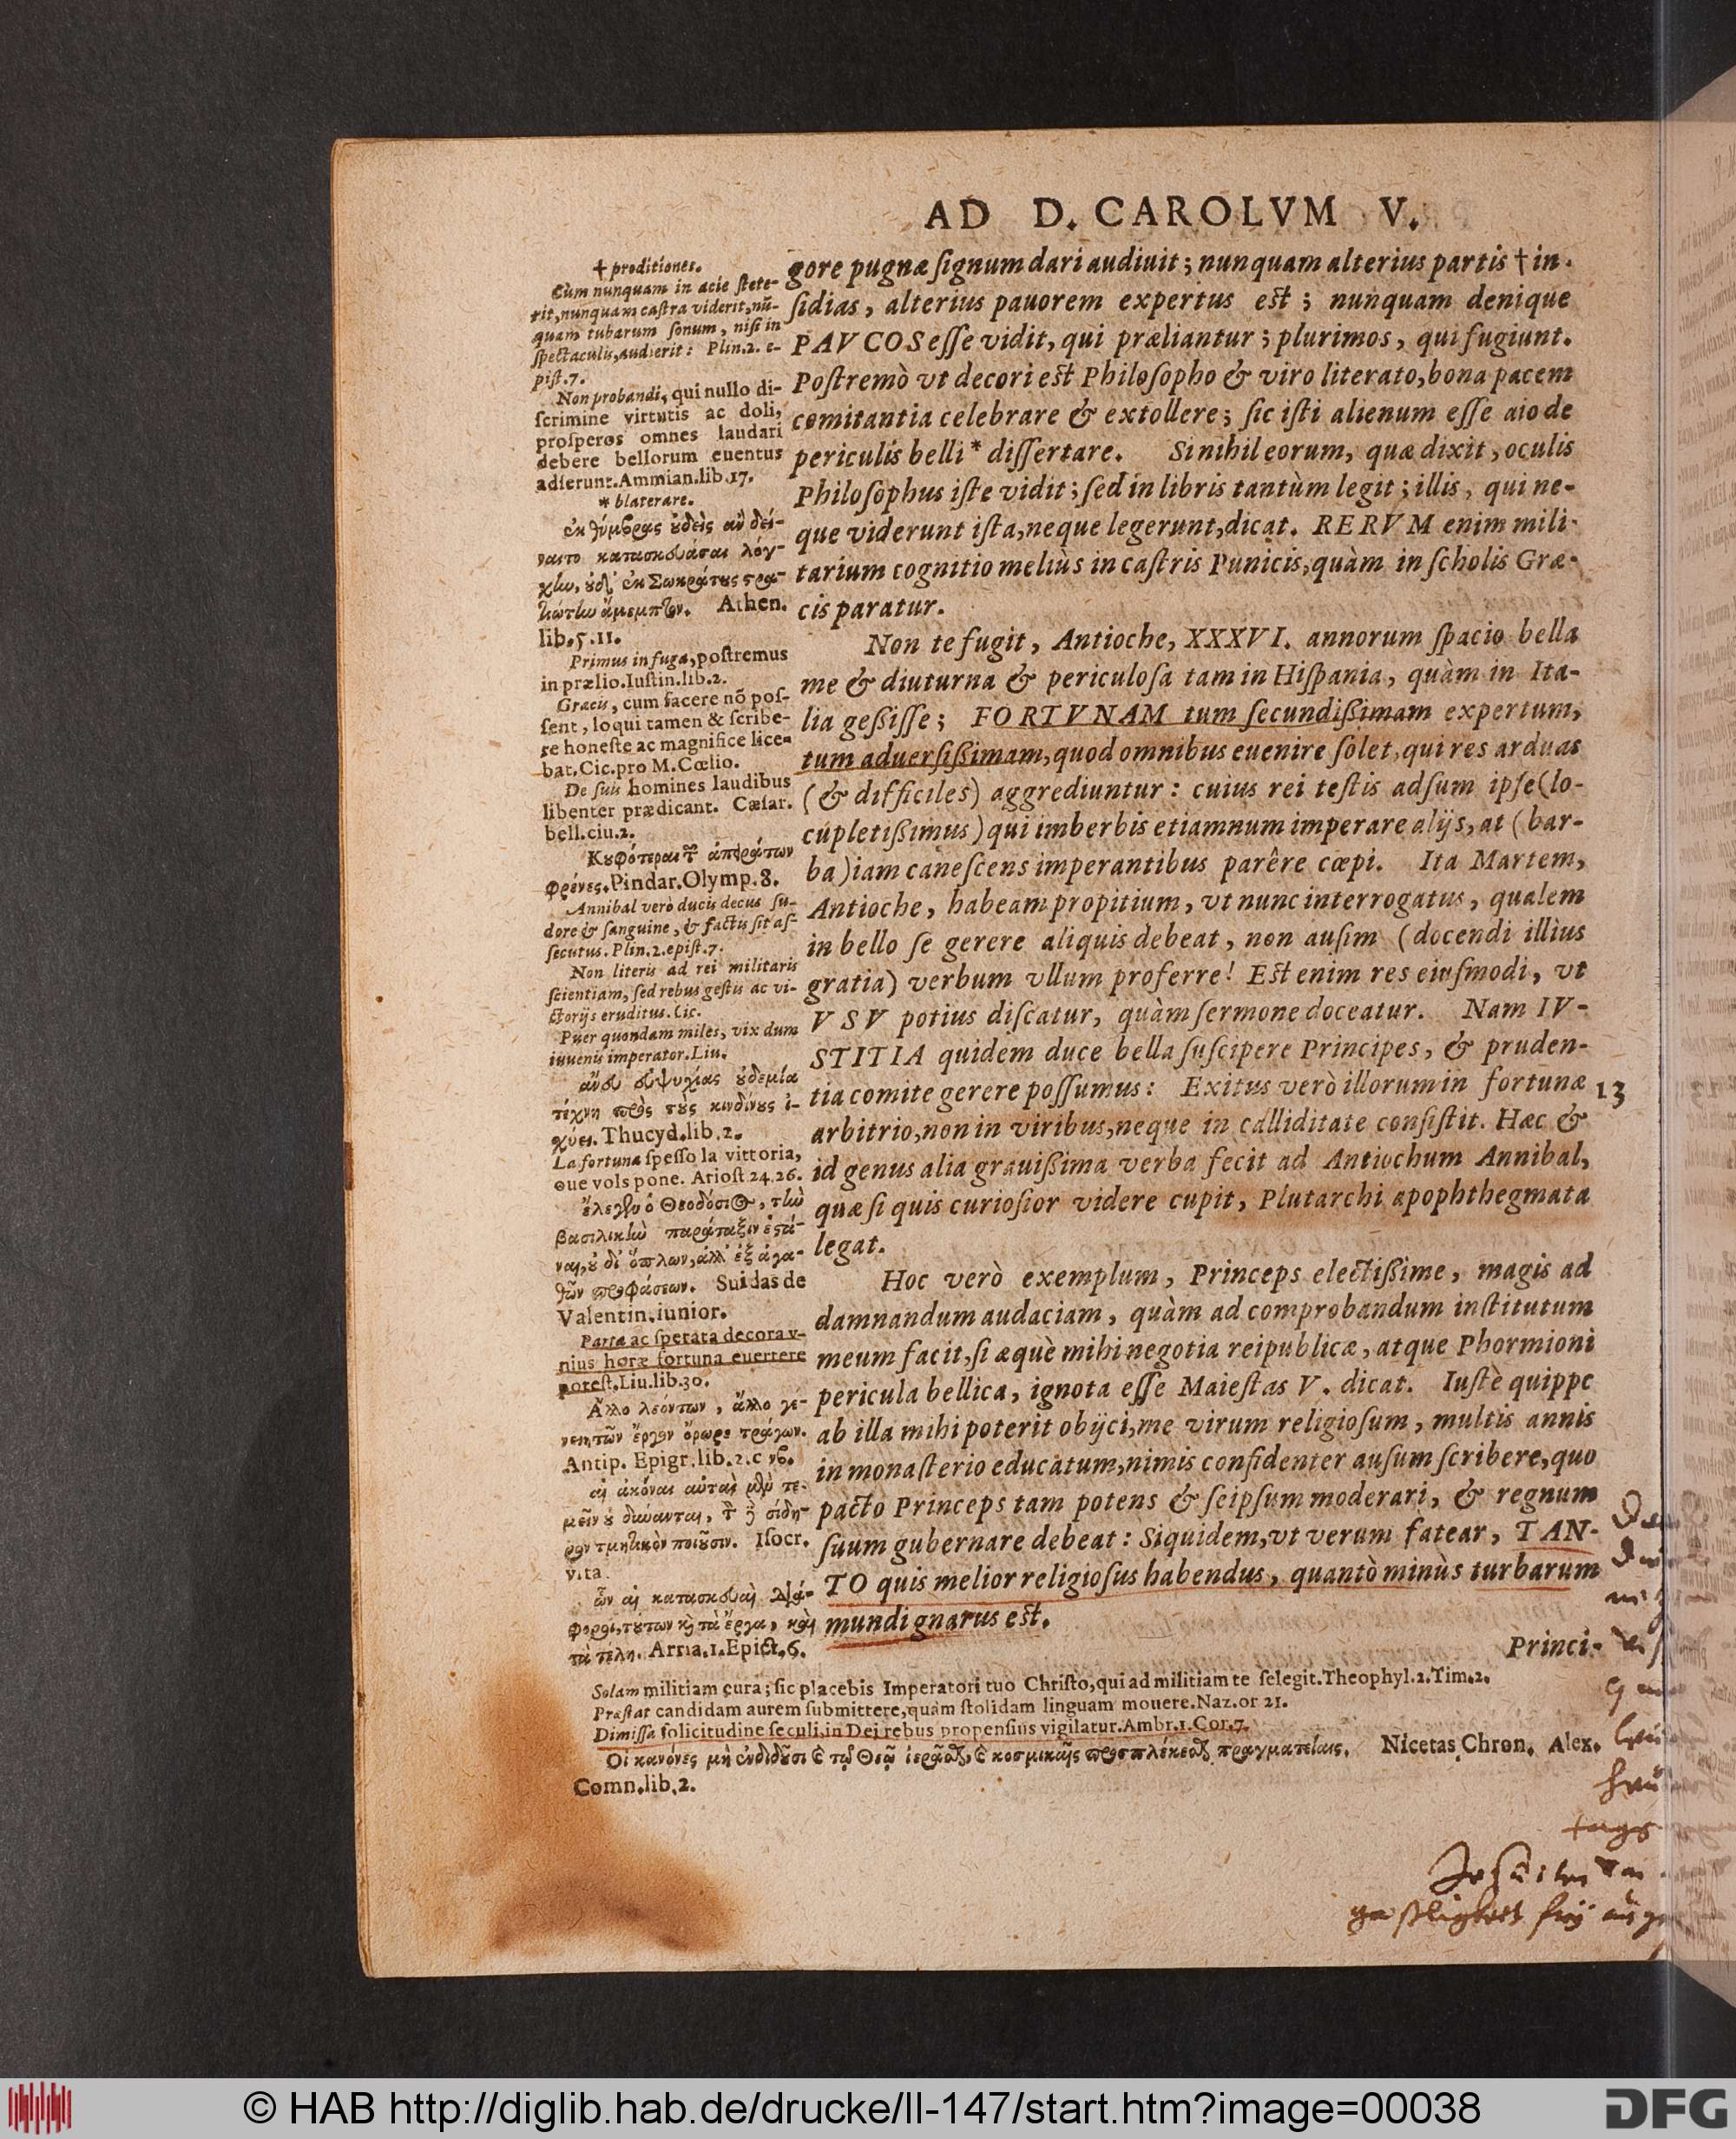 AD D. CAROLVM V.
gore pugnæ ſignum dari audiuit; nunquam alterius partis † in-
ſidias, alterius pauorem expertus eſt; nunquam denique
PAVCOS eſſe vidit, qui præliantur; plurimos, qui fugiunt.
Poſtremò vt decori eſt Philoſopho & viro literato, bona pacem
comitantia celebrare & extollere; ſic iſti alienum eſſe aio de
periculis belli * diſſertare. Si nihil eorum, quæ dixit, oculis
Philoſophus iſte vidit; ſed in libris tantùm legit; illis, qui ne-
que viderunt iſta, neque legerunt, dicat. RERVM enim mili-
tarium cognitio meliùs in caſtris Punicis, quàm in ſcholis Græ-
cis paratur.
Non te fugit, Antioche, XXXVI. annorum ſpacio bella
me & diuturna & periculoſa tam in Hiſpania, quàm in Ita-
lia geßiſſe; FORTVNAM tum ſecundißimam expertum,
tum aduerſißimam, quod omnibus euenire ſolet, qui res arduas
(& difficiles) aggrediuntur: cuius rei teſtis adſum ipſe (lo-
cupletißimus) qui imberbis etiamnum imperare alijs, at (bar-
ba) iam caneſcens imperantibus parêre cœpi. Ita Martem,
Antioche, habeam propitium, vt nunc interrogatus, qualem
in bello ſe gerere aliquis debeat, non auſim (docendi illius
gratia) verbum vllum proferre! Eſt enim res eiuſmodi, vt
VSV potius diſcatur, quàm ſermone doceatur. Nam IV-
STITIA quidem duce bella ſuſcipere Principes, & pruden-
tia comite gerere poſſumus: Exitus verò illorum in fortunæ
arbitrio, non in viribus, neque in calliditate conſiſtit. Hæc &
id genus alia grauißima verba fecit ad Antiochum Annibal,
quæ ſi quis curioſior videre cupit, Plutarchi apophthegmata
legat.
Hoc verò exemplum, Princeps electißime, magis ad
damnandum audaciam, quàm ad comprobandum inſtitutum
meum facit, ſi æquè mihi negotia reipublicæ, atque Phormioni
pericula bellica, ignota eſſe Maieſtas V. dicat. Iuſtè quippe
ab illa mihi poterit obijci, me virum religioſum, multis annis
in monaſterio educatum, nimis confidenter auſum ſcribere, quo
pacto Princeps tam potens & ſeipſum moderari, & regnum
ſuum gubernare debeat: Siquidem, vt verum fatear, TAN-
TO quis melior religioſus habendus, quantò minùs turbarum
mundi gnarus eſt.
Princi-
13
† proditiones.
Cùm nunquam in acie ſtete-
rit, nunquam caſtra viderit, nū-
quam tubarum ſonum, niſi in
ſpectaculis, audierit: Plin.2. e-
piſt.7.
Non probandi, qui nullo di-
ſcrimine virtutis ac doli,
proſperos omnes laudari
debere bellorum euentus
adſerunt. Ammian.lib.17.
* blaterare.
ἐκ θύμβρας οὐδεὶς ἂν δύ-
ναιτο κατασκευάσαι λόγ-
χην, οὐδ' ἐκ Σωκράτους στρα-
τιώτην ἄμεμπτον. Athen.
lib.5.11.
Primus in fuga, poſtremus
in prælio. Iuſtin.lib.2.
Græcis, cum facere nō poſ-
ſent, loqui tamen & ſcribe-
re honeſte ac magnifice lice-
bat. Cic. pro M. Cœlio.
De ſuis homines laudibus
libenter prædicant. Cæſar.
bell.ciu.2.
Κουφότεραι γὰρ ἀπειράτων
φρένες. Pindar. Olymp. 8.
Annibal verò ducis decus ſu-
dore & ſanguine, & factis ſit aſ-
ſecutus. Plin.2.epiſt.7.
Non literis ad rei militaris
ſcientiam, ſed rebus geſtis ac vi-
ctorijs eruditus. Cic.
Puer quondam miles, vix dum
iuuenis imperator. Liu.
ἄνευ εὐψυχίας οὐδεμία
τέχνη πρὸς τοὺς κινδύνους ἰ-
σχύει. Thucyd.lib.2.
La fortuna ſpeſſo la vittoria,
oue vols pone. Arioſt.24.26.
ἔλεγξεν ὁ Θεοδόσιος, τὴν
βασιλικὴν παράταξιν ἑστά-
ναι, οὐ δι' ὅπλων, ἀλλ' ἐξ ἀγα-
θῶν προφάσεων. Suidas de
Valentin. iunior.
Parta ac ſperata decora v-
nius horæ fortuna euertere
poteſt. Liu.lib.30.
Ἄλλο λεόντων, ἄλλο γε-
νειητῶν ἔργον ὄρωρε τράγων.
Antip. Epigr.lib.2.c 
αἱ ἀκόναι αὐταὶ μὲν τε-
μεῖν οὐ δύνανται, τὸν δὲ σίδη-
ρον τμητικὸν ποιοῦσιν. Iſocr.
vita.
ὧν αἱ κατασκευαὶ διά-
φοροι, τούτων καὶ τὰ ἔργα, καὶ
τὰ τέλη. Arria.1.Epict.6.
Solam militiam cura; ſic placebis Imperatori tuo Chriſto, qui ad militiam te ſelegit. Theophyl.2.Tim.2.
Præſtat candidam aurem ſubmittere, quàm ſtolidam linguam mouere. Naz.or 21.
Dimiſſa ſolicitudine ſeculi, in Dei rebus propenſius vigilatur. Ambr.1.Cor.7.
Οἱ κανόνες μὴ ἐνδιδοῦσι τῷ Θεῷ ἱερᾶσθαι, κοσμικαῖς προσπλέκεσθαι πραγματείαις. Nicetas Chron. Alex.
Comn.lib.2.
© HAB http://diglib.hab.de/drucke/ll-147/start.htm?image=00038
DFG